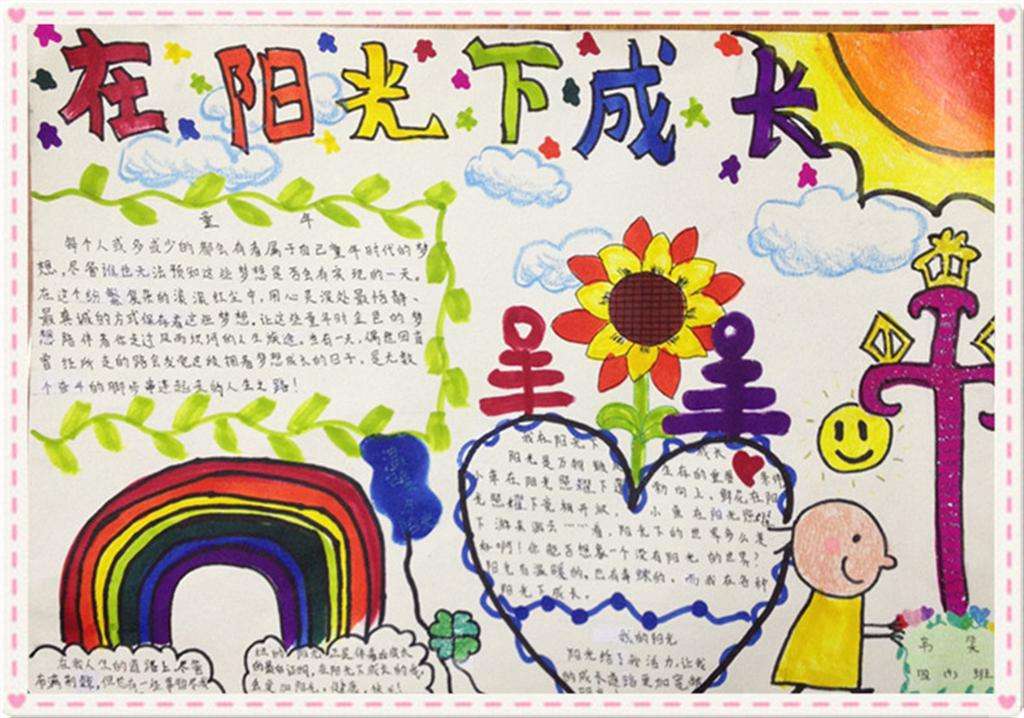 在阳光下成长
童 年
每个人或多或少的都会有着属于自己童年时代的梦
想,尽管谁也无法预知这些梦想是否会有实现的一天。
在这个纷繁复杂的滚滚红尘中,用心灵深处最恬静、
最真诚的方式保存着这些梦想。让这些童年时金色的梦
想陪伴着你走过风雨坎坷的人生旅途。总有一天,偶然回首
曾经所走的路会发觉这段拥着梦想成长的日子,是无数
个奋斗的脚步串连起来的人生之路!
我在阳光下成长
阳光是万物
小草在阳光照耀下
光照耀下竞相开放。小鱼在阳光
下游来游去……看,阳光下的世界多么美
好啊!你能否想象一个没有阳光的世界?
阳光有温暖的,也有毒辣的,而我在各种
阳光下成长。
我的阳光
阳光给了我活力,让我
的成长道路更加宽
在我人生的道路上,尽管
布满荆棘,但也有一些
阳光是伴着我成长
的最好证明,在阳光下成长的我,
会更加阳光,健康,快乐!
班